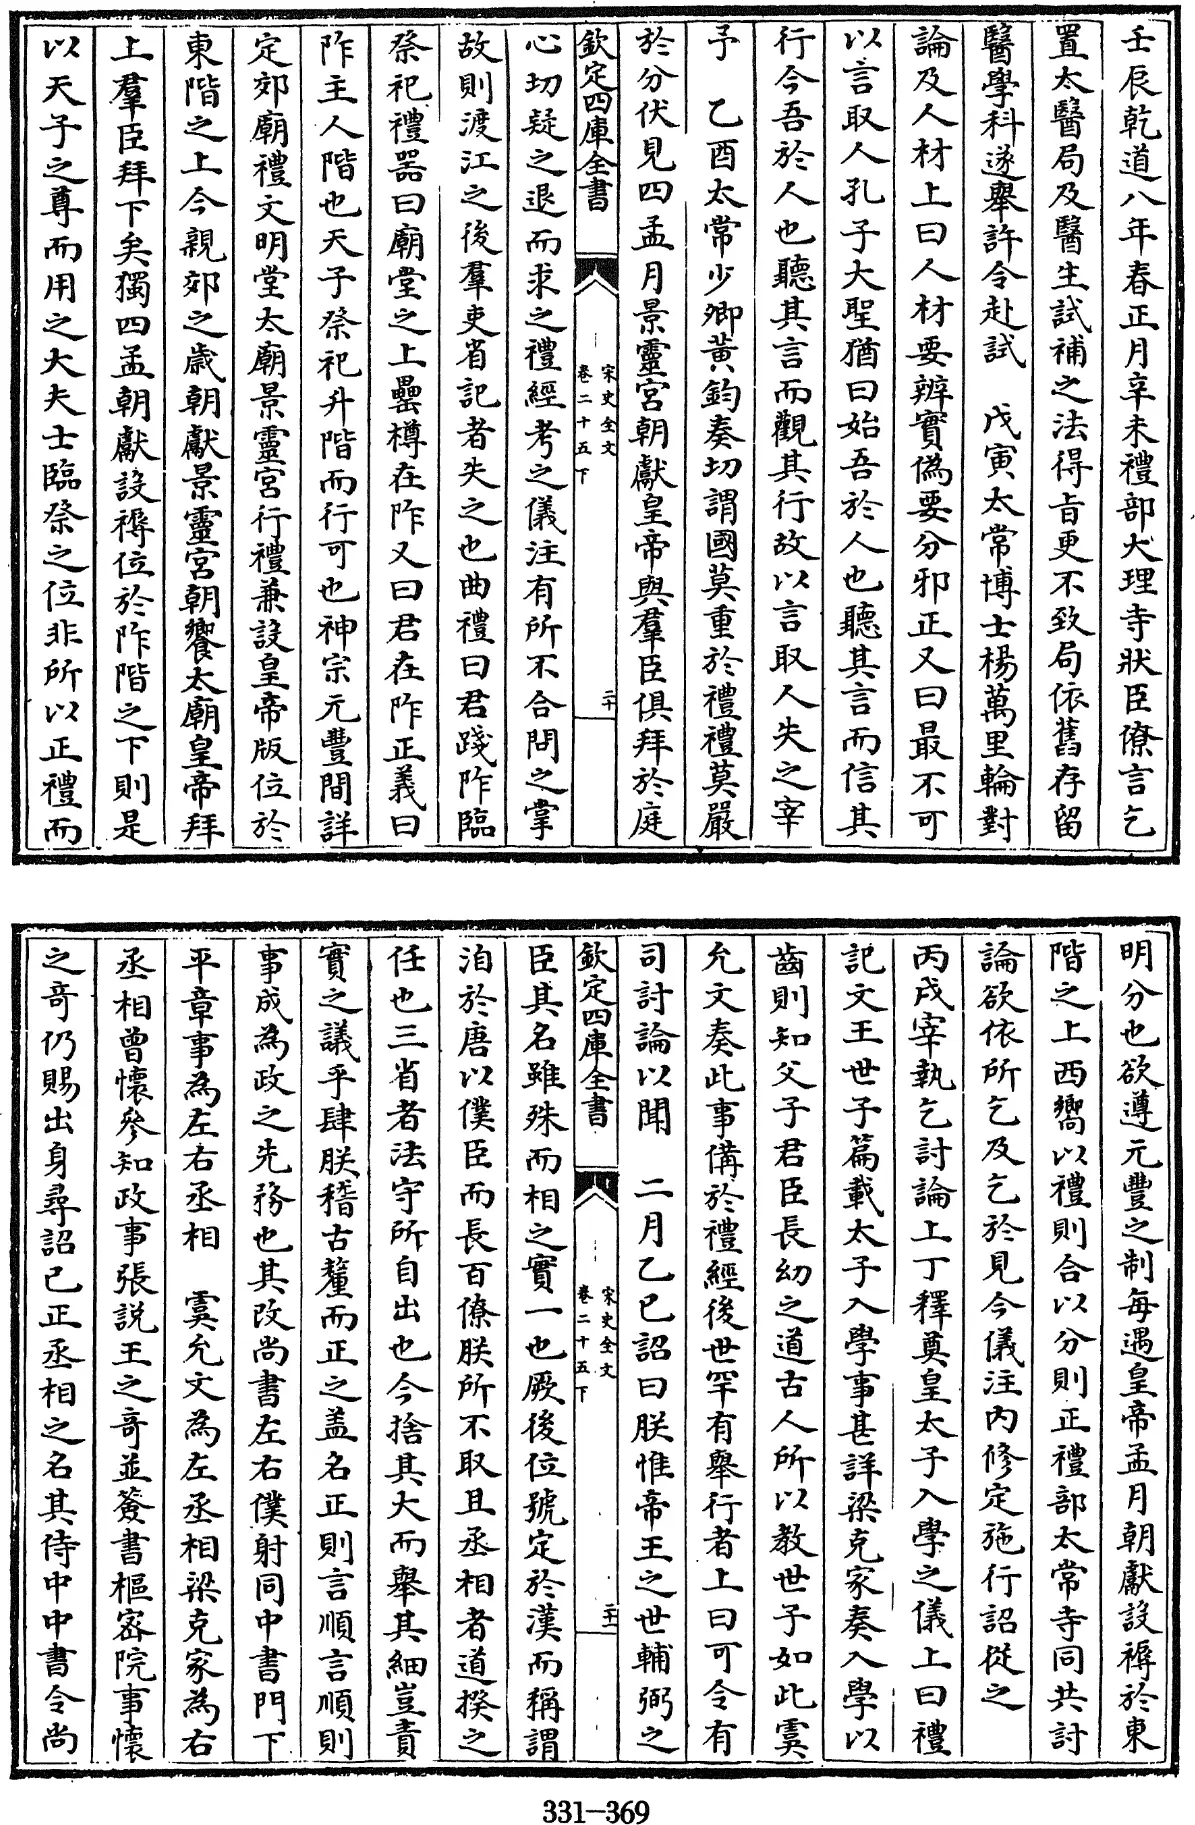 壬辰乾道八年春正月辛未禮部大理寺狀臣僚言乞
置太醫局及醫生試補之法得旨更不致局依舊存留
醫學科遂舉許令赴試　戊寅太常博士楊萬里輪對
論及人材上曰人材要辨實偽要分邪正又曰最不可
以言取人孔子大聖猶曰始吾於人也聽其言而信其
行今吾於人也聽其言而觀其行故以言取人失之宰
予　乙酉太常少卿黃鈞奏切謂國莫重於禮禮莫嚴
於分伏見四孟月景靈宮朝獻皇帝與羣臣俱拜於庭
欽定四庫全書
宋史全文
卷二十五下
二十
心切疑之退而求之禮經考之儀注有所不合問之掌
故則渡江之後羣吏省記者失之也曲禮曰君踐阼臨
祭祀禮器曰廟堂之上罍樽在阼又曰君在阼正義曰
阼主人階也天子祭祀升階而行可也神宗元豐間詳
定郊廟禮文明堂太廟景靈宮行禮兼設皇帝版位於
東階之上今親郊之歲朝獻景靈宮朝饗太廟皇帝拜
上羣臣拜下矣獨四孟朝獻設褥位於阼階之下則是
以天子之尊而用之大夫士臨祭之位非所以正禮而
明分也欲遵元豐之制每遇皇帝孟月朝獻設褥於東
階之上西嚮以禮則合以分則正禮部太常寺同共討
論欲依所乞及乞於見今儀注內修定施行詔從之
丙戌宰執乞討論上丁釋奠皇太子入學之儀上曰禮
記文王世子篇載太子入學事甚詳梁克家奏入學以
齒則知父子君臣長幼之道古人所以教世子如此虞
允文奏此事備於禮經後世罕有舉行者上曰可令有
司討論以聞　二月乙巳詔曰朕惟帝王之世輔弼之
欽定四庫全書
宋史全文
卷二十五下
二十一
臣其名雖殊而相之實一也厥後位號定於漢而稱謂
洎於唐以僕臣而長百僚朕所不取且丞相者道揆之
任也三省者法守所自出也今捨其大而舉其細豈責
實之議乎肆朕稽古釐而正之盖名正則言順言順則
事成為政之先務也其改尚書左右僕射同中書門下
平章事為左右丞相　虞允文為左丞相梁克家為右
丞相曾懷參知政事張說王之奇並簽書樞密院事懷
之奇仍賜出身尋詔已正丞相之名其侍中中書令尚
331—369